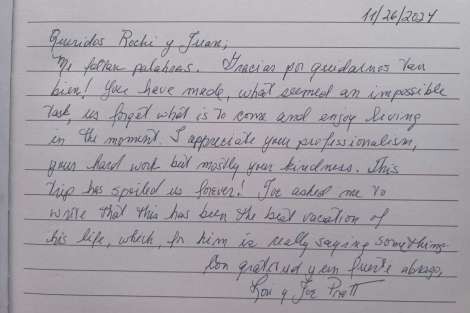 11/26/2024
Queridos Rochi y Juan,
Me faltan palabras. Gracias por guidarnos tan
bien! You have made, what seemed an impossible
task, us forget what is to come and enjoy living
in the moment. I appreciate your professionalism,
your hard work but mostly your kindness. This
trip has spoiled us forever! Joe asked me to
write that this has been the best vacation of
his life, which, for him is really saying something.
Con gratitud y un fuerte abrazo,
Lori y Joe Pratt